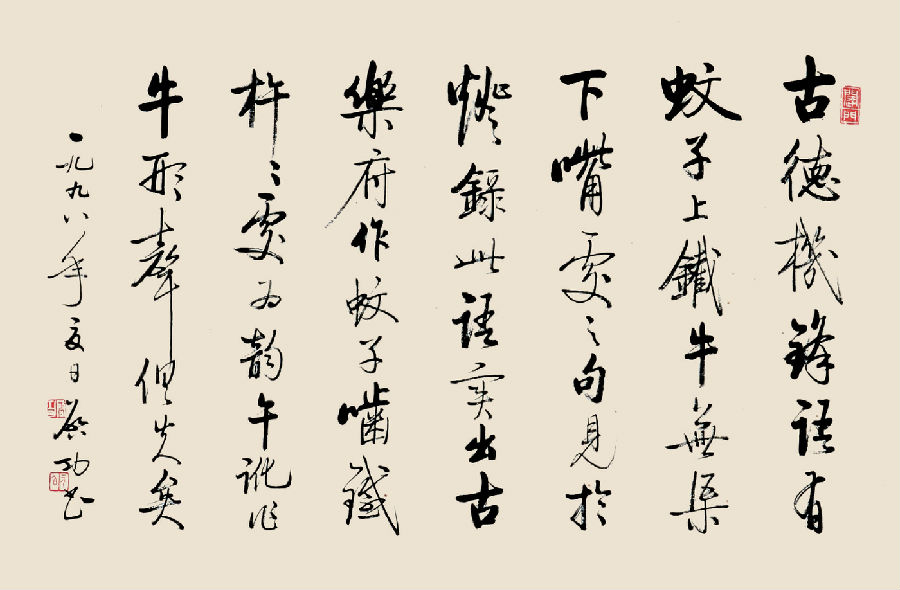 古德機鋒語有
蚊子上鐵牛無渠
下嘴處之句見於
燈錄此語實出古
樂府作蚊子嚙鐵
杵〻處為韻午訛作
牛形聲俱失矣
一九九八年夏日 啟功書